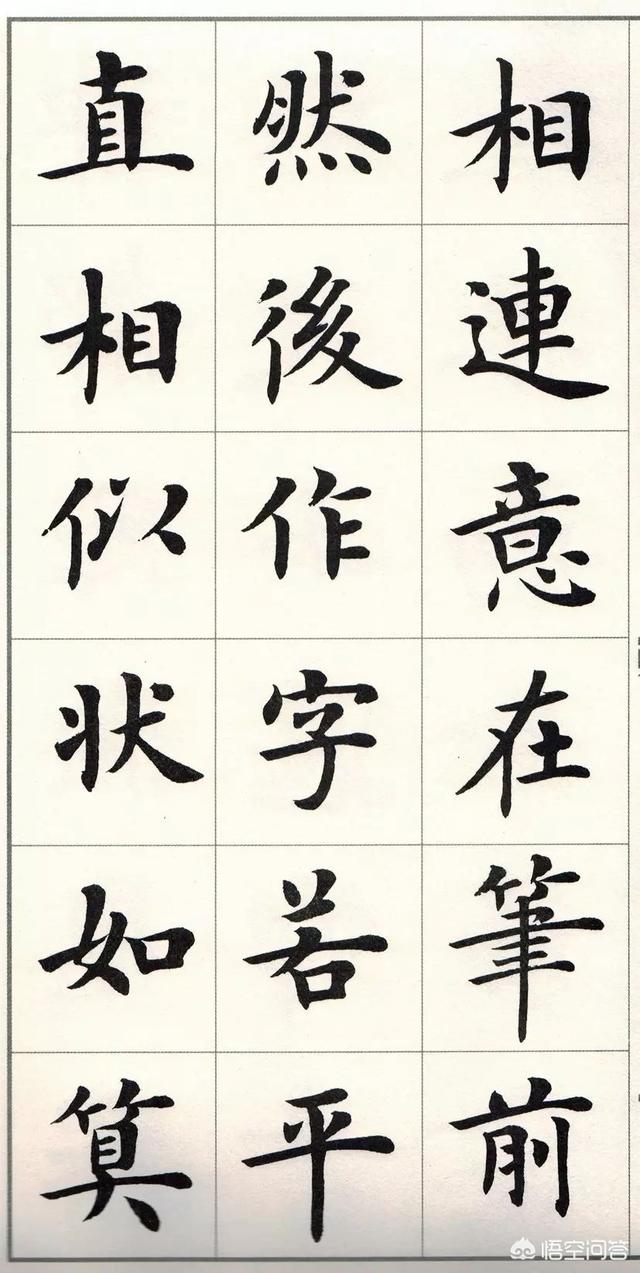 相連意在筆前
然後作字若平
直相似状如算
悟空问答